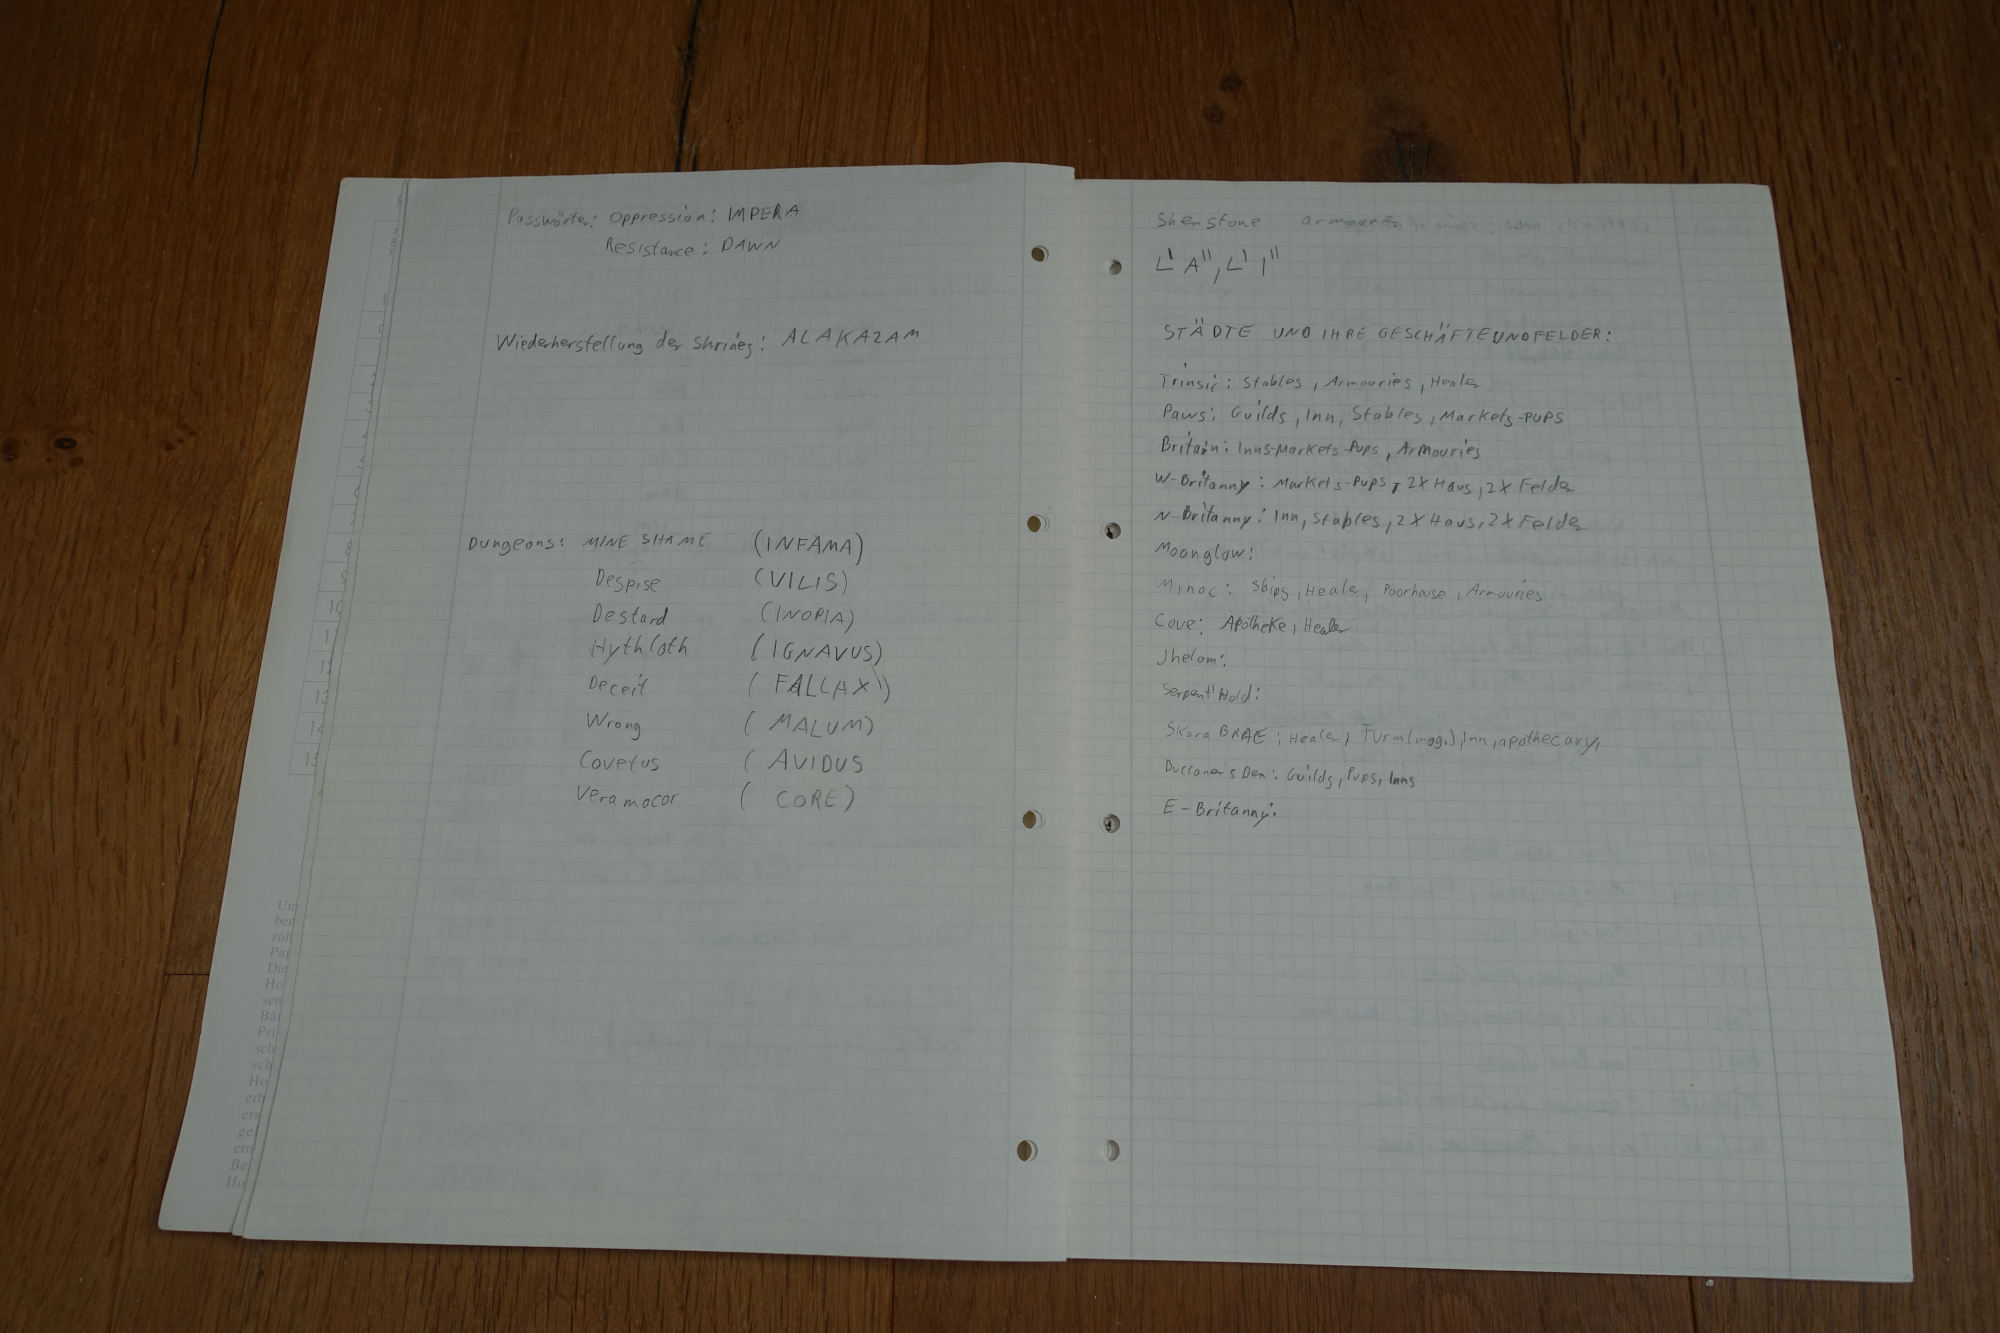 Passwörter: Oppression: IMPERA
Resistance: DAWN
Wiederherstellung der Shrines: ALAKAZAM
Dungeons: MINE SHAME (INFAMA)
Despise (VILIS)
Destard (INOPIA)
Hythloth (IGNAVUS)
Deceit (FALLAX)
Wrong (MALUM)
Covetus (AVIDUS
Veramocor (CORE)
Shenstone armourer
L' A", L' I"
STÄDTE UND IHRE GESCHÄFTE UND FELDER:
Trinsic: Stables, Armouries, Healer
Paws: Guilds, Inn, Stables, Markets-PUPS
Britain: Inns-Markets-Pups, Armouries
W-Britanny: Markets-Pups, 2X Haus, 2X Felder
N-Britanny: Inn, Stables, 2X Haus, 2X Felder
Moonglow:
Minoc: Ships, Healer, Poorhouse, Armouries
Cove: Apotheke, Healer
Jhelom:
Serpent' Hold:
Skara BRAE: Healer, Turm (mag.), Inn, apothecary,
Buccaner's Den: Guilds, Pups, Inns
E-Britanny:
10
13
14
Un
ber
roh
Pap
Die
Ho
sen
Bä
Pri
sch
sch
Ho
erb
ers
ge
em
Be
Ho